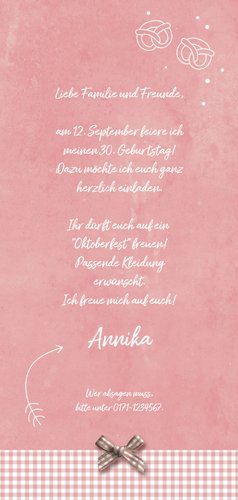 Liebe Familie und Freunde,
am 12. September feiere ich
meinen 30. Geburtstag!
Dazu möchte ich euch ganz
herzlich einladen.
Ihr dürft euch auf ein
"Oktoberfest" freuen!
Passende Kleidung
erwünscht.
Ich freue mich auf euch!
Annika
Wer absagen muss,
bitte unter 0171-1234567.